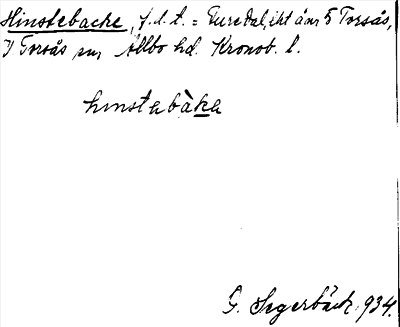 Hinstebacke, f.d.t. = Euredal, ikt å nr 5 Torsås,
i Torsås sn, Allbo hd. Kronob. l.
hinstabàka
G. Segerbäck 934.